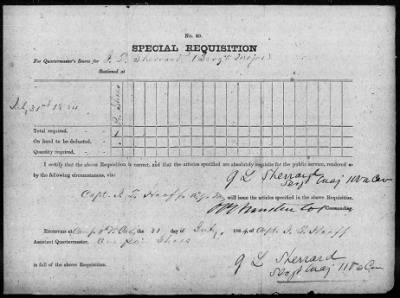 No. 40.
SPECIAL REQUISITION
For Quartermaster's Stores for J. L. Sherrard (Sergt Major)
Stationed at
Shoes
July 31st 1864
Total required, - -
On hand to be deducted,
Quantity required, -
I certify that the above Requisition is correct, and that the articles specified are absolutely requisite for the public service, rendered so
by the following circumstances, viz:
J L Sherrard
Sergt Maj 11 Va Cav
Capt. will issue the articles specified in the above Requisition.
Commanding.
Received at Camp the 31 of July, 1864, of Capt.
Assistant Quartermaster, One pr. Shoes
in full of the above Requisition.
J L Sherrard
Sergt Maj 11 Va Cav